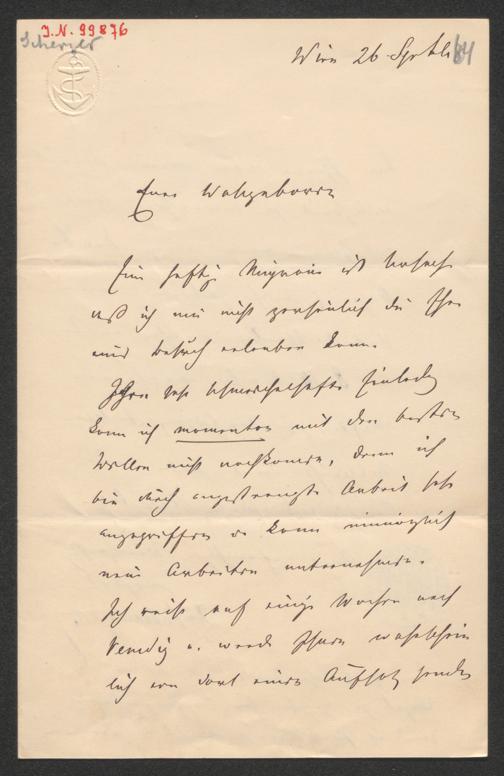 I.N. 99876
Scherzer
Wien 26 Sptbr 84
Euer Wohlgeboren
Eine heftige Migraine ist Ursache
daß ich mir nicht persönlich die Ehre
eines Besuch erlauben kann.
Ihrer sehr schmeichelhaften Einladg
kann ich momentan mit dem besten
Willen nicht nachkommen, denn ich
bin durch angestrengte Arbeit sehr
angegriffen u kann unmöglich
neue Arbeiten unternehmen.
Ich reise auf einige Wochen nach
Venedig u. werde Ihnen wahrschein
lich von dort einen Aufsatz senden